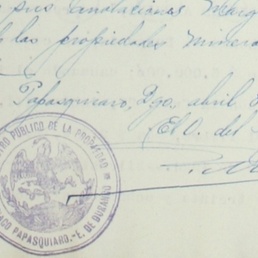 sus anotaciones Marg
las propiedades Minera
Papasquiaro, Dgo, abril
El O. del
RO PÚBLICO DE LA PROPIEDAD
AGO PAPASQUIARO.-E. DE DURANGO